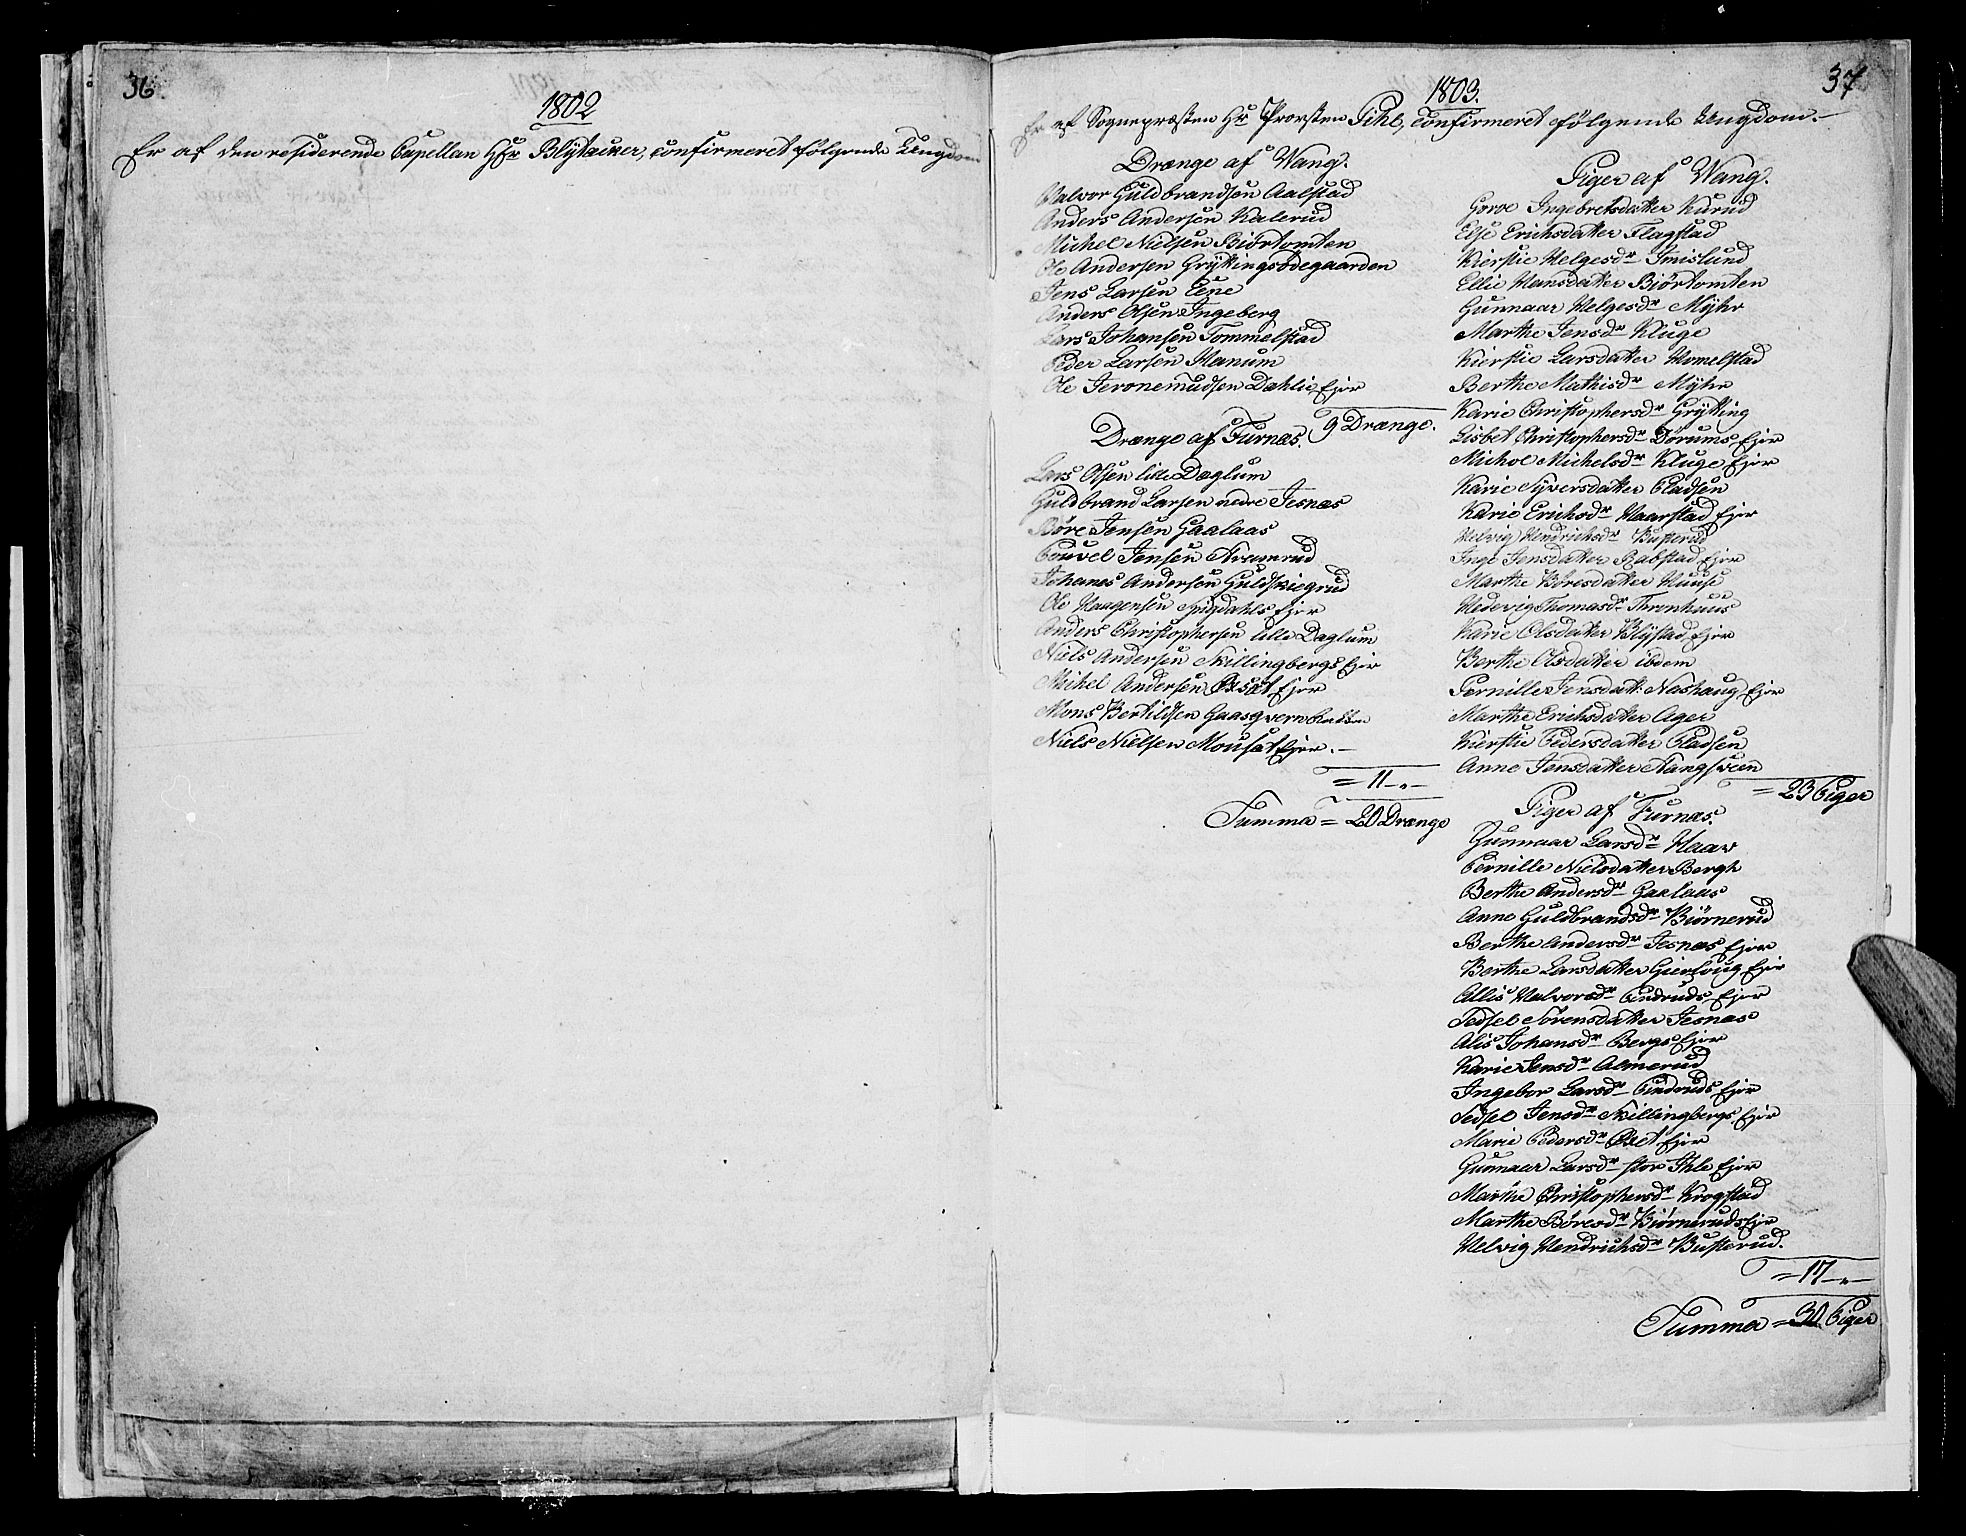 36
1802
Er af den residerende Capellan Hr Blÿtæcker, confirmeret følgende Ungdom
37
1803.
Er af Sognepræsten Hr Provsten Pihl, confirmeret følgende Ungdom.
Drænge af Wang.
Halvor Guldbrandsen Aalstad
Anders Andersen Kalerud
Michel Nielsen Biørtomten
Ole Andersen Grÿttingsødegaarden
Jens Larsen Eene
Anders Olsen Ingeberg
Lars Johansen Tommelstad
Peder Larsen Manum
Ole Jeronemudsen Dæhlie Ejer
9 Drænge.
Drænge af Furnæs.
Lars Olsen lille Dæglum
Guldbrand Larsen nedre Jesnæs
Børe Jensen Gaalaas
Pouvel Jensen Kramrud
Johanes Andersen Guldskiegrud
Ole Haagensen Ejer
Anders Christophersen lille Daglum
Niels Andersen Skillingbergs Ejer
Michel Andersen Ejer
Mons Bertilsen Gaasqvern
Niels Nielsen Mousæt Ejer.
= 11 -"-
Summa = 20 Drænge
Piger af Wang.
Goroe Ingebretsdatter Kurud
Else Erichsdatter Flagstad
Kierstie Helgesdr Smislund
Ellie Hansdatter Biørtomten
Gunnaar Helgesdr Mÿhr
Marthe Jensdr Kluge
Kierstie Larsdatter Homelstad
Berthe Mathisdr Mÿhr
Karie Christophersdr Grÿtting
Lisbet Christophersdr Dørums Ejer
Michoe Michelsdr Kluge Ejer
Karie Syversdatter Pladsen
Karie Erichsdr Haarstad Ejer
Helvig Hendrichsdr Busterud
Inge Jensdatter Rabstad Ejer
Marthe Børesdatter Huuse
Hedevig Thomasdr Thronhuus
Karie Olsdatter Blÿstad Ejer
Berthe Olsdatter ibdem
Pernille Jensdatt: Nashaug Ejer
Marthe Erichsdatter Ager
Kierstie Pedersdatter Pladsen
Anne Jensdatter Aangsveen
= 23 Piger
Piger af Furnæs.
Gunnaar Larsdr Haav
Pernille Nielsdatter Bergh
Berthe Andersdr Gaalaas
Anne Guldbrandsdr Biørnerud
Berthe Andersdr Jesnæs Ejer
Berthe Larsdatter Gierloug Ejer
Allis Halvorsdr Pindruds Ejer
Sedsel Sørensdatter Jesnæs
Alis Johansdr Bergs Ejer
Karie Jensdr Almerud
Ingebor Larsdr Pindruds Ejer
Sedsel Jensdr Skillingbergs Ejer
Marie Pedersdr Ejer
Gunnaar Larsdr stor Ihle Ejer
Marthe Christophersdr Krogstad
Marthe Børesdr Biørneruds Ejer
Helvig Hendrichsdr Busterud.
= 17 -"-
Summa = 30 Piger